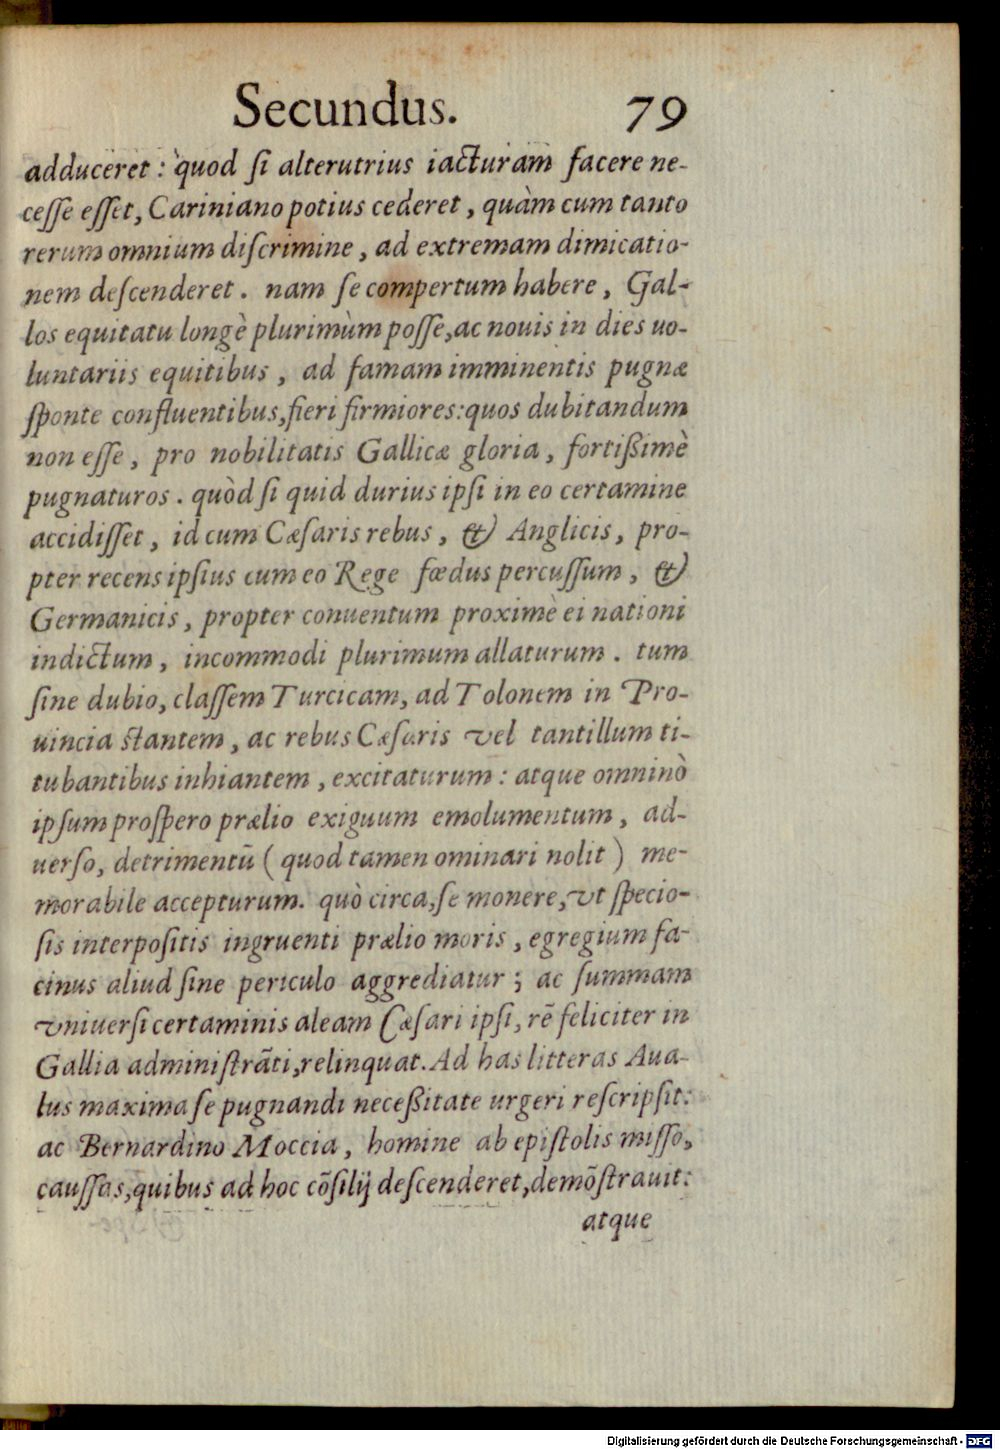 Secundus. 79
adduceret: quod ſi alterutrius iacturam facere ne-
ceſſe eſſet, Cariniano potius cederet, quàm cum tanto
rerum omnium diſcrimine, ad extremam dimicatio-
nem deſcenderet. nam ſe compertum habere, Gal-
los equitatu longè plurimùm poſſe, ac nouis in dies uo-
luntariis equitibus, ad famam imminentis pugnæ
ſponte confluentibus, fieri firmiores: quos dubitandum
non eſſe, pro nobilitatis Gallicæ gloria, fortißimè
pugnaturos. quòd ſi quid durius ipſi in eo certamine
accidiſſet, id cum Cæſaris rebus, & Anglicis, pro-
pter recens ipſius cum eo Rege fœdus percuſſum, &
Germanicis, propter conuentum proximè ei nationi
indictum, incommodi plurimum allaturum. tum
ſine dubio, claſſem Turcicam, ad Tolonem in Pro-
uincia ſtantem, ac rebus Cæſaris vel tantillum ti-
tubantibus inhiantem, excitaturum: atque omninò
ipſum proſpero prælio exiguum emolumentum, ad-
uerſo, detrimentū (quod tamen ominari nolit) me-
morabile accepturum. quò circa, ſe monere, vt ſpecio-
ſis interpoſitis ingruenti prælio moris, egregium fa-
cinus aliud ſine periculo aggrediatur; ac ſummam
vniuerſi certaminis aleam Cæſari ipſi, rē feliciter in
Gallia adminiſtrāti, relinquat. Ad has litteras Aua-
lus maxima ſe pugnandi neceßitate urgeri reſcripſit:
ac Bernardino Moccia, homine ab epiſtolis miſſo,
cauſſas, quibus ad hoc cōſilij deſcenderet, demōſtrauit:
atque
Digitalisierung gefördert durch die Deutsche Forschungsgemeinschaft - DFG